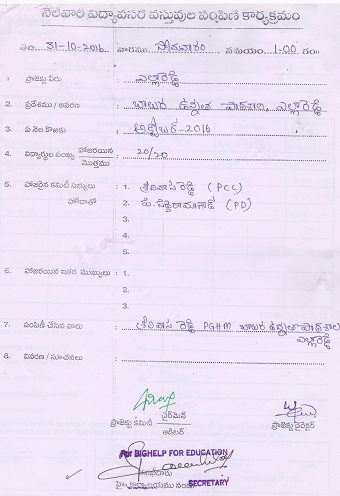 నెలవారి విద్యావసర వస్తువుల పంపిణి కార్యక్రమం
తేది. 31-10-2016 వారము. సోమవారం సమయం 1.00 గం॥
1. ప్రాజెక్టు పేరు ఎల్లారెడ్డి
2. ప్రదేశము / ఆవరణ బాలుర ఉన్నత పాఠశాల, ఎల్లారెడ్డి
3. ఏ నెల కొఱకు అక్టోబర్-2016
4. విద్యార్థుల సంఖ్య హాజరయిన 20/20
మొత్తము
5. హాజరైన కమిటీ సభ్యులు : 1. శ్రీనివాస్ రెడ్డి (PCC)
హోదాతో 2. (PD)
3.
6. హాజరయిన ఇతర ముఖ్యులు : 1.
2.
3.
7. పంపిణీ చేసిన వారు శ్రీనివాస రెడ్డి PGHM బాలుర ఉన్నత పాఠశాల
ఎల్లారెడ్డి
8. వివరణ / సూచనలు
ప్రాజెక్టు కమిటీ చైర్మెన్ ప్రాజెక్టు డైరెక్టర్
ఆడిటర్
For BIGHELP FOR EDUCATION
SECRETARY